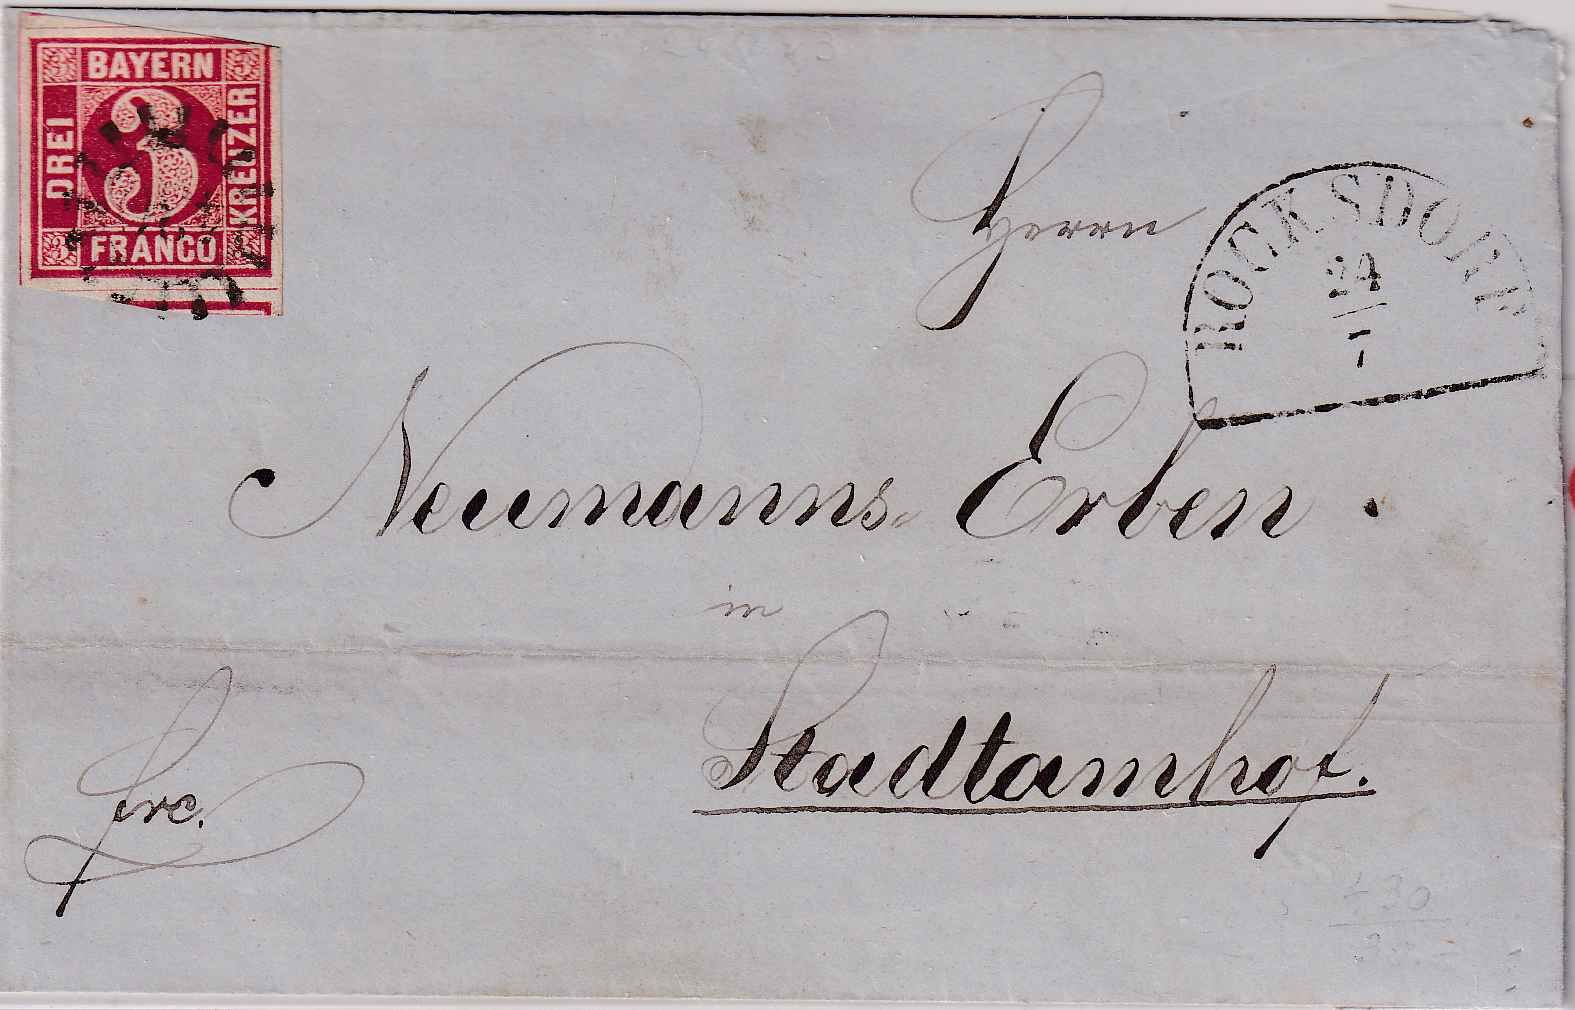 BAYERN
DREI
3
KREUZER
FRANCO
3
ROCKSDORF
24
Herrn
Neumanns Erben.
in
Stadtamhof.
frc.